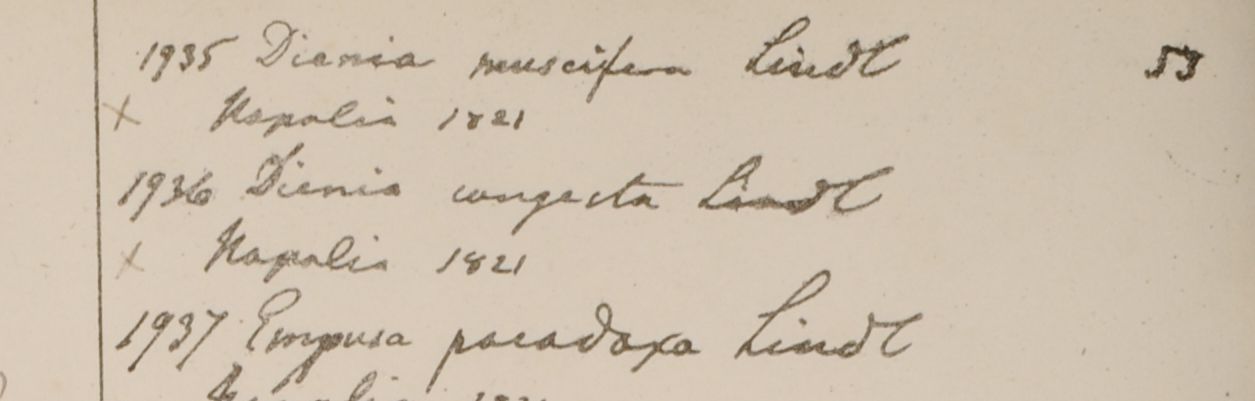 1935 Dienia muscifera Lindl 53
x Napalia 1821
1936 Dienia congesta Lindl
x Napalia 1821
1937 Empusa paradoxa Lindl
Napalia 1821